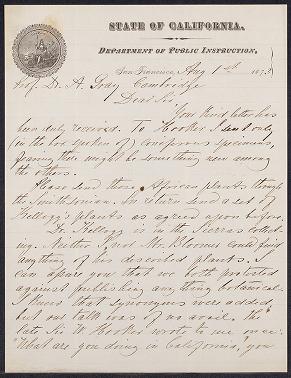 STATE OF CALIFORNIA.
DEPARTMENT OF PUBLIC INSTRUCTION,
San Francisco, Aug 1st 187
Prof. Dr. A. Gray Cambridge
Dear Sir,
Your third letter has
been duly received. To Hooker I send only
(in the box spoken of) coniferous specimens,
fearing there might be something new among
the others.
Please send those African plants through
the Smithsonian. In return send a set of
Kellogg's plants as agreed upon before.
Dr. Kellogg is in the Sierras collect-
ing. Neither I nor Mr. Bloomer could find
anything of his described plants. I
can assure you that we both protested
against publishing anything botanical.
I knew that synonyms were added,
but our talk was of no avail. The
late Sir W. Hooker wrote to me once:
"What are you doing in California," you